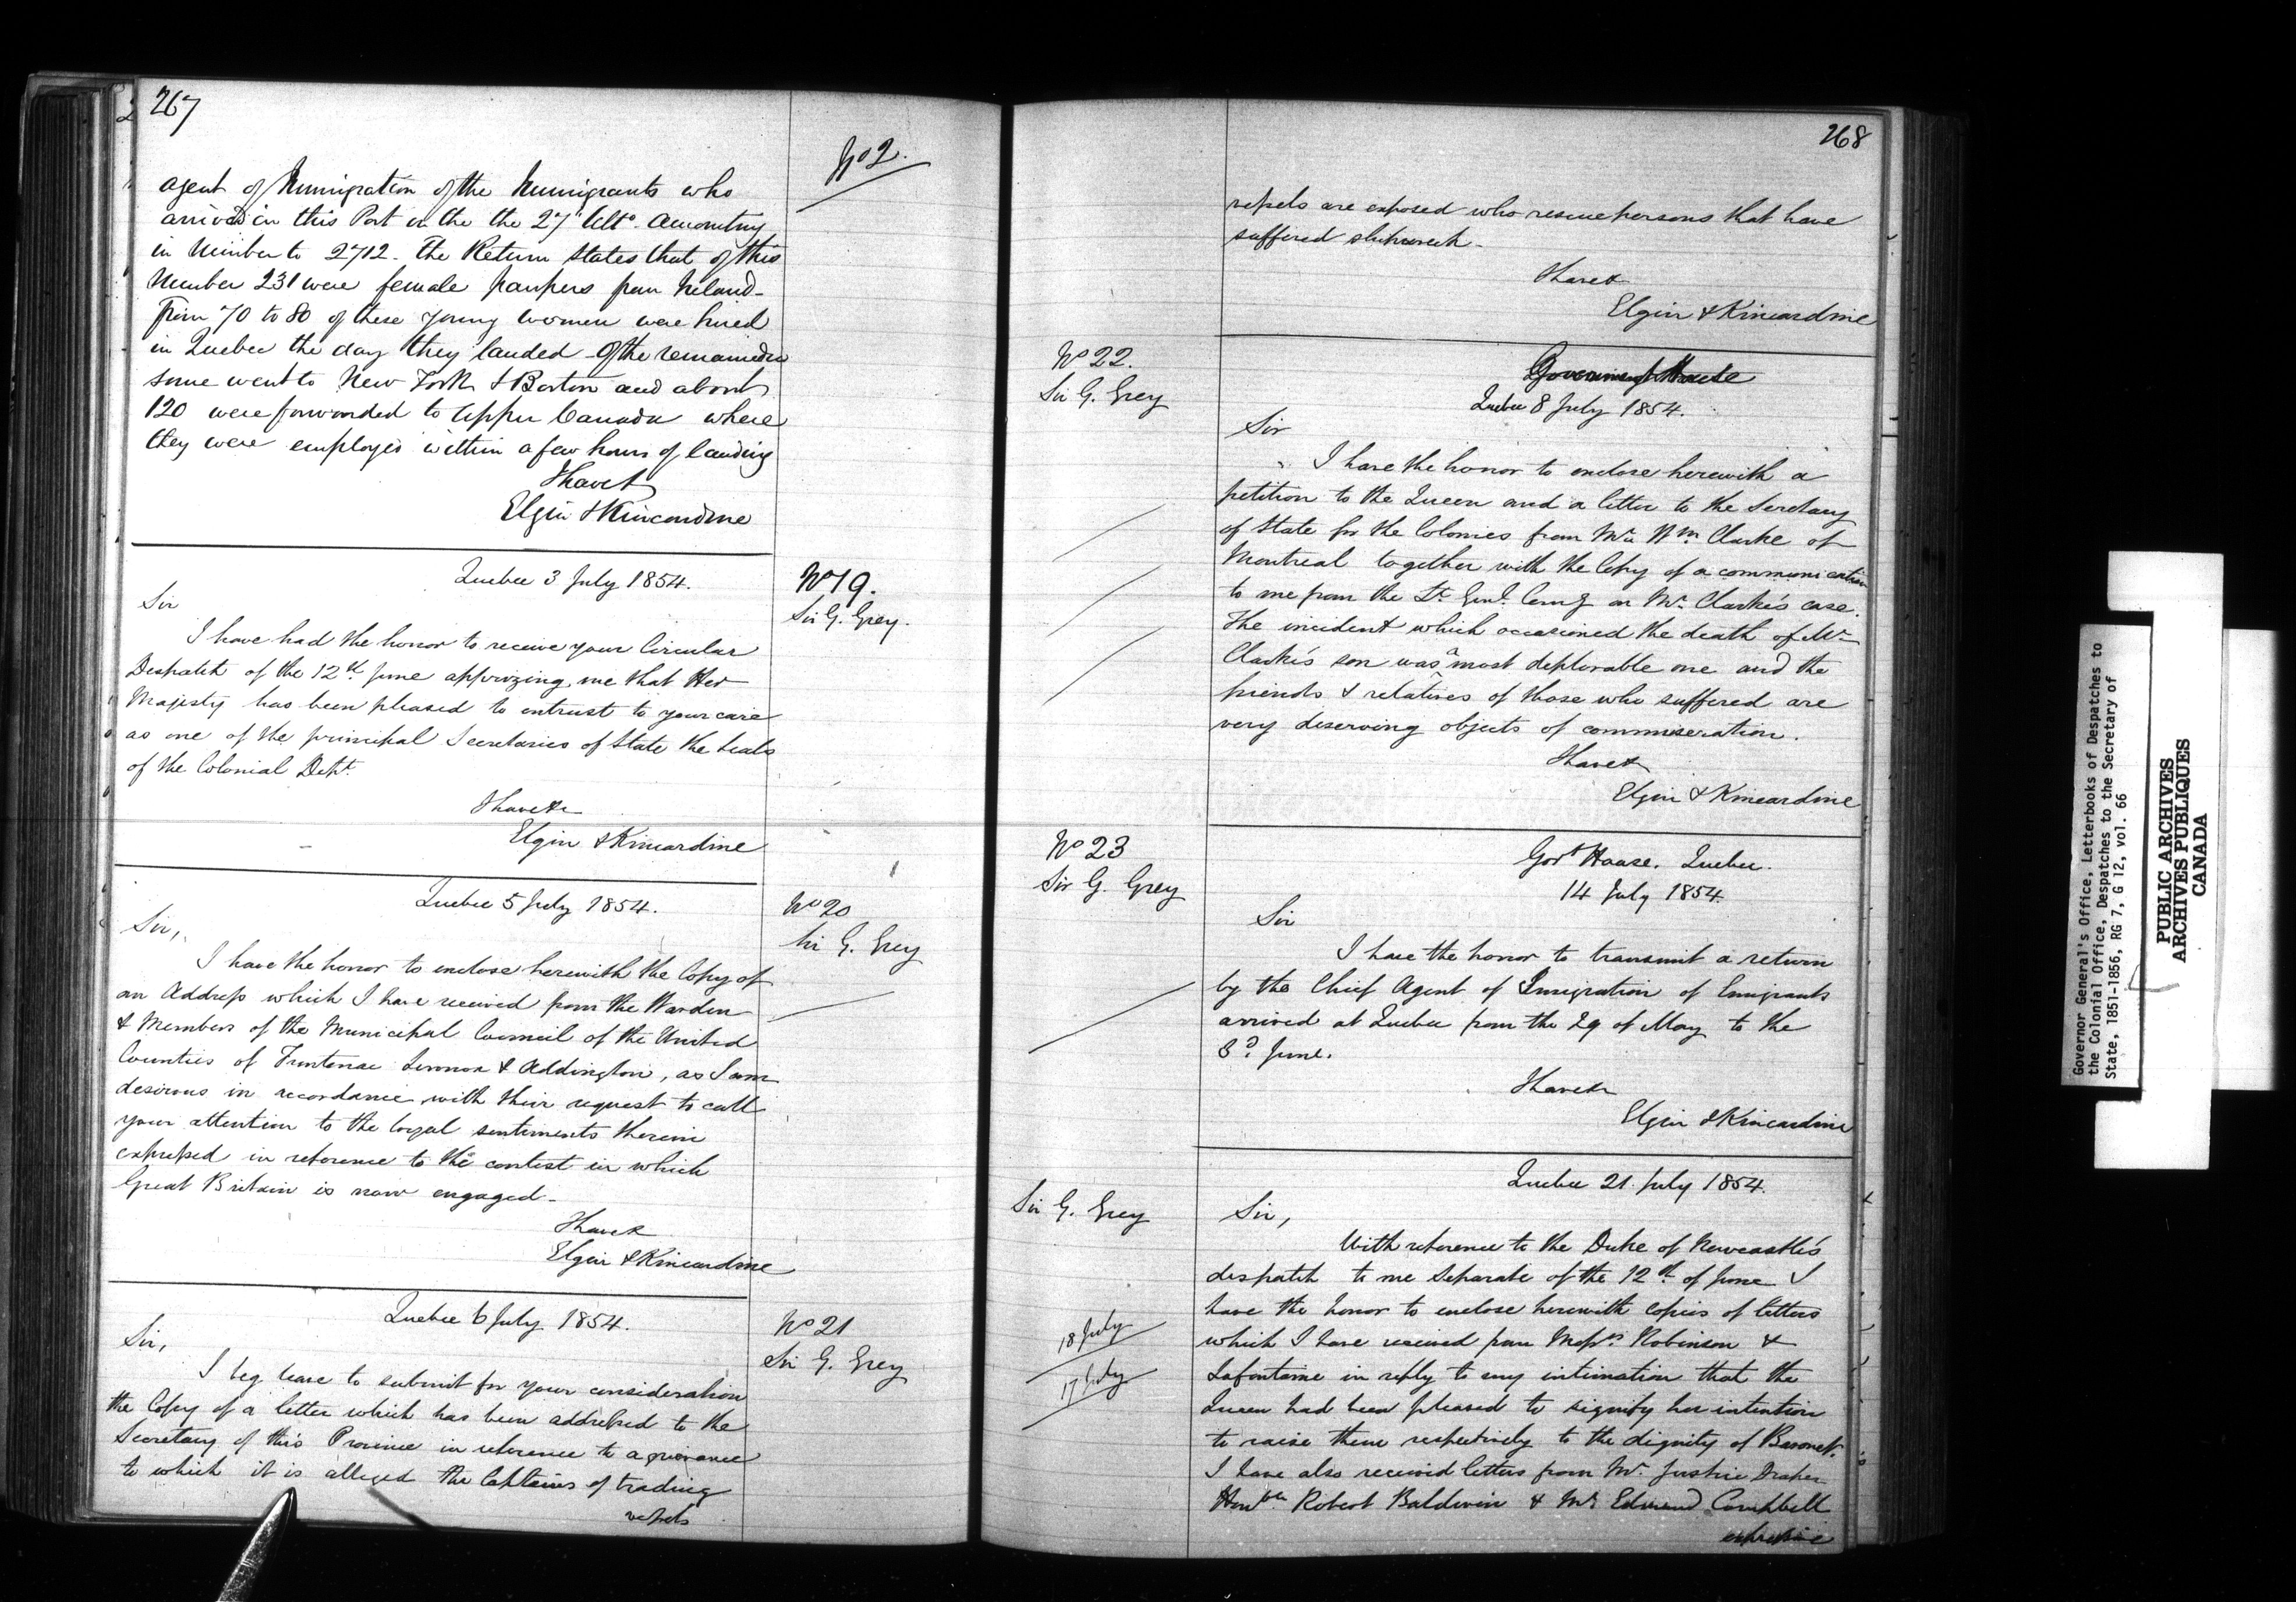 267
No 2.
agent of Immigration of the Immigrants who
arrived in this Port on the the 27" Ulto. amounting
in Number to 2712 - The Return states that of this
Number 231 were female paupers from Ireland -
From 70 to 80 of these young women were hired
in Quebec the day they landed - Of the remainder
some went to New York & Boston and about
120 were forwarded to Upper Canada where
they were employed within a few hours of landing
I have &
Elgin & Kincardine
Quebec 3 July 1854.
No 19.
Sir G. Grey.
Sir
I have had the honor to receive your Circular
Despatch of the 12th June apprizing me that Her
Majesty has been pleased to entrust to your care
as one of the principal Secretaries of State the Seals
of the Colonial Dept.
I have &c
Elgin & Kincardine
Quebec 5 July 1854.
No 20
Sir G. Grey
Sir,
I have the honor to enclose herewith the Copy of
an Address which I have received from the Warden
& Members of the Municipal Council of the United
Counties of Frontenac Lennox & Addington, as I am
desirous in accordance with their request to call
your attention to the loyal sentiments therein
expressed in reference to the contest in which
Great Britain is now engaged -
I have &
Elgin & Kincardine
Quebec 6 July 1854.
No 21
Sir G. Grey
Sir,
I beg leave to submit for your consideration
the Copy of a letter which has been addressed to the
Secretary of this Province in reference to a grievance
to which it is alleged the Captains of trading
vessels
268
vessels are exposed who rescue persons that have
suffered shipwreck -
I have &
Elgin & Kincardine
No 22.
Sir G. Grey
Government House
Quebec 8 July 1854.
Sir
I have the honor to enclose herewith a
petition to the Queen and a letter to the Secretary
of State for the Colonies from Mr Wm Clarke of
Montreal together with the Copy of a communication
to me from the Lt Genl. Comg on Mr Clarke's case.
The incident which occasioned the death of Mr
Clarke's son was a most deplorable one and the
friends & relatives of those who suffered are
very deserving objects of commiseration.
I have &
Elgin & Kincardine
No 23
Sir G. Grey
Govt House. Quebec.
14 July 1854.
Sir
I have the honor to transmit a return
by the Chief Agent of Immigration of Emigrants
arrived at Quebec from the 29 of May to the
8th June.
I have &c
Elgin & Kincardine
Quebec 21 July 1854.
Sir G. Grey
Sir,
With reference to the Duke of Newcastle's
despatch to me Separate of the 12th of June I
have the honor to enclose herewith copies of letters
18 July
which I have received from Messrs Robinson &
17 July
Lafontaine in reply to my intimation that the
Queen had been pleased to signify her intention
to raise them respectively to the dignity of Baronet.
I have also received letters from Mr. Justice Draper
Honble Robert Baldwin & Mr Edmund Campbell
expressive
Governor General's Office, Letterbooks of Despatches to
the Colonial Office, Despatches to the Secretary of
State, 1851-1856, RG 7, G 12, vol. 66
PUBLIC ARCHIVES
ARCHIVES PUBLIQUES
CANADA